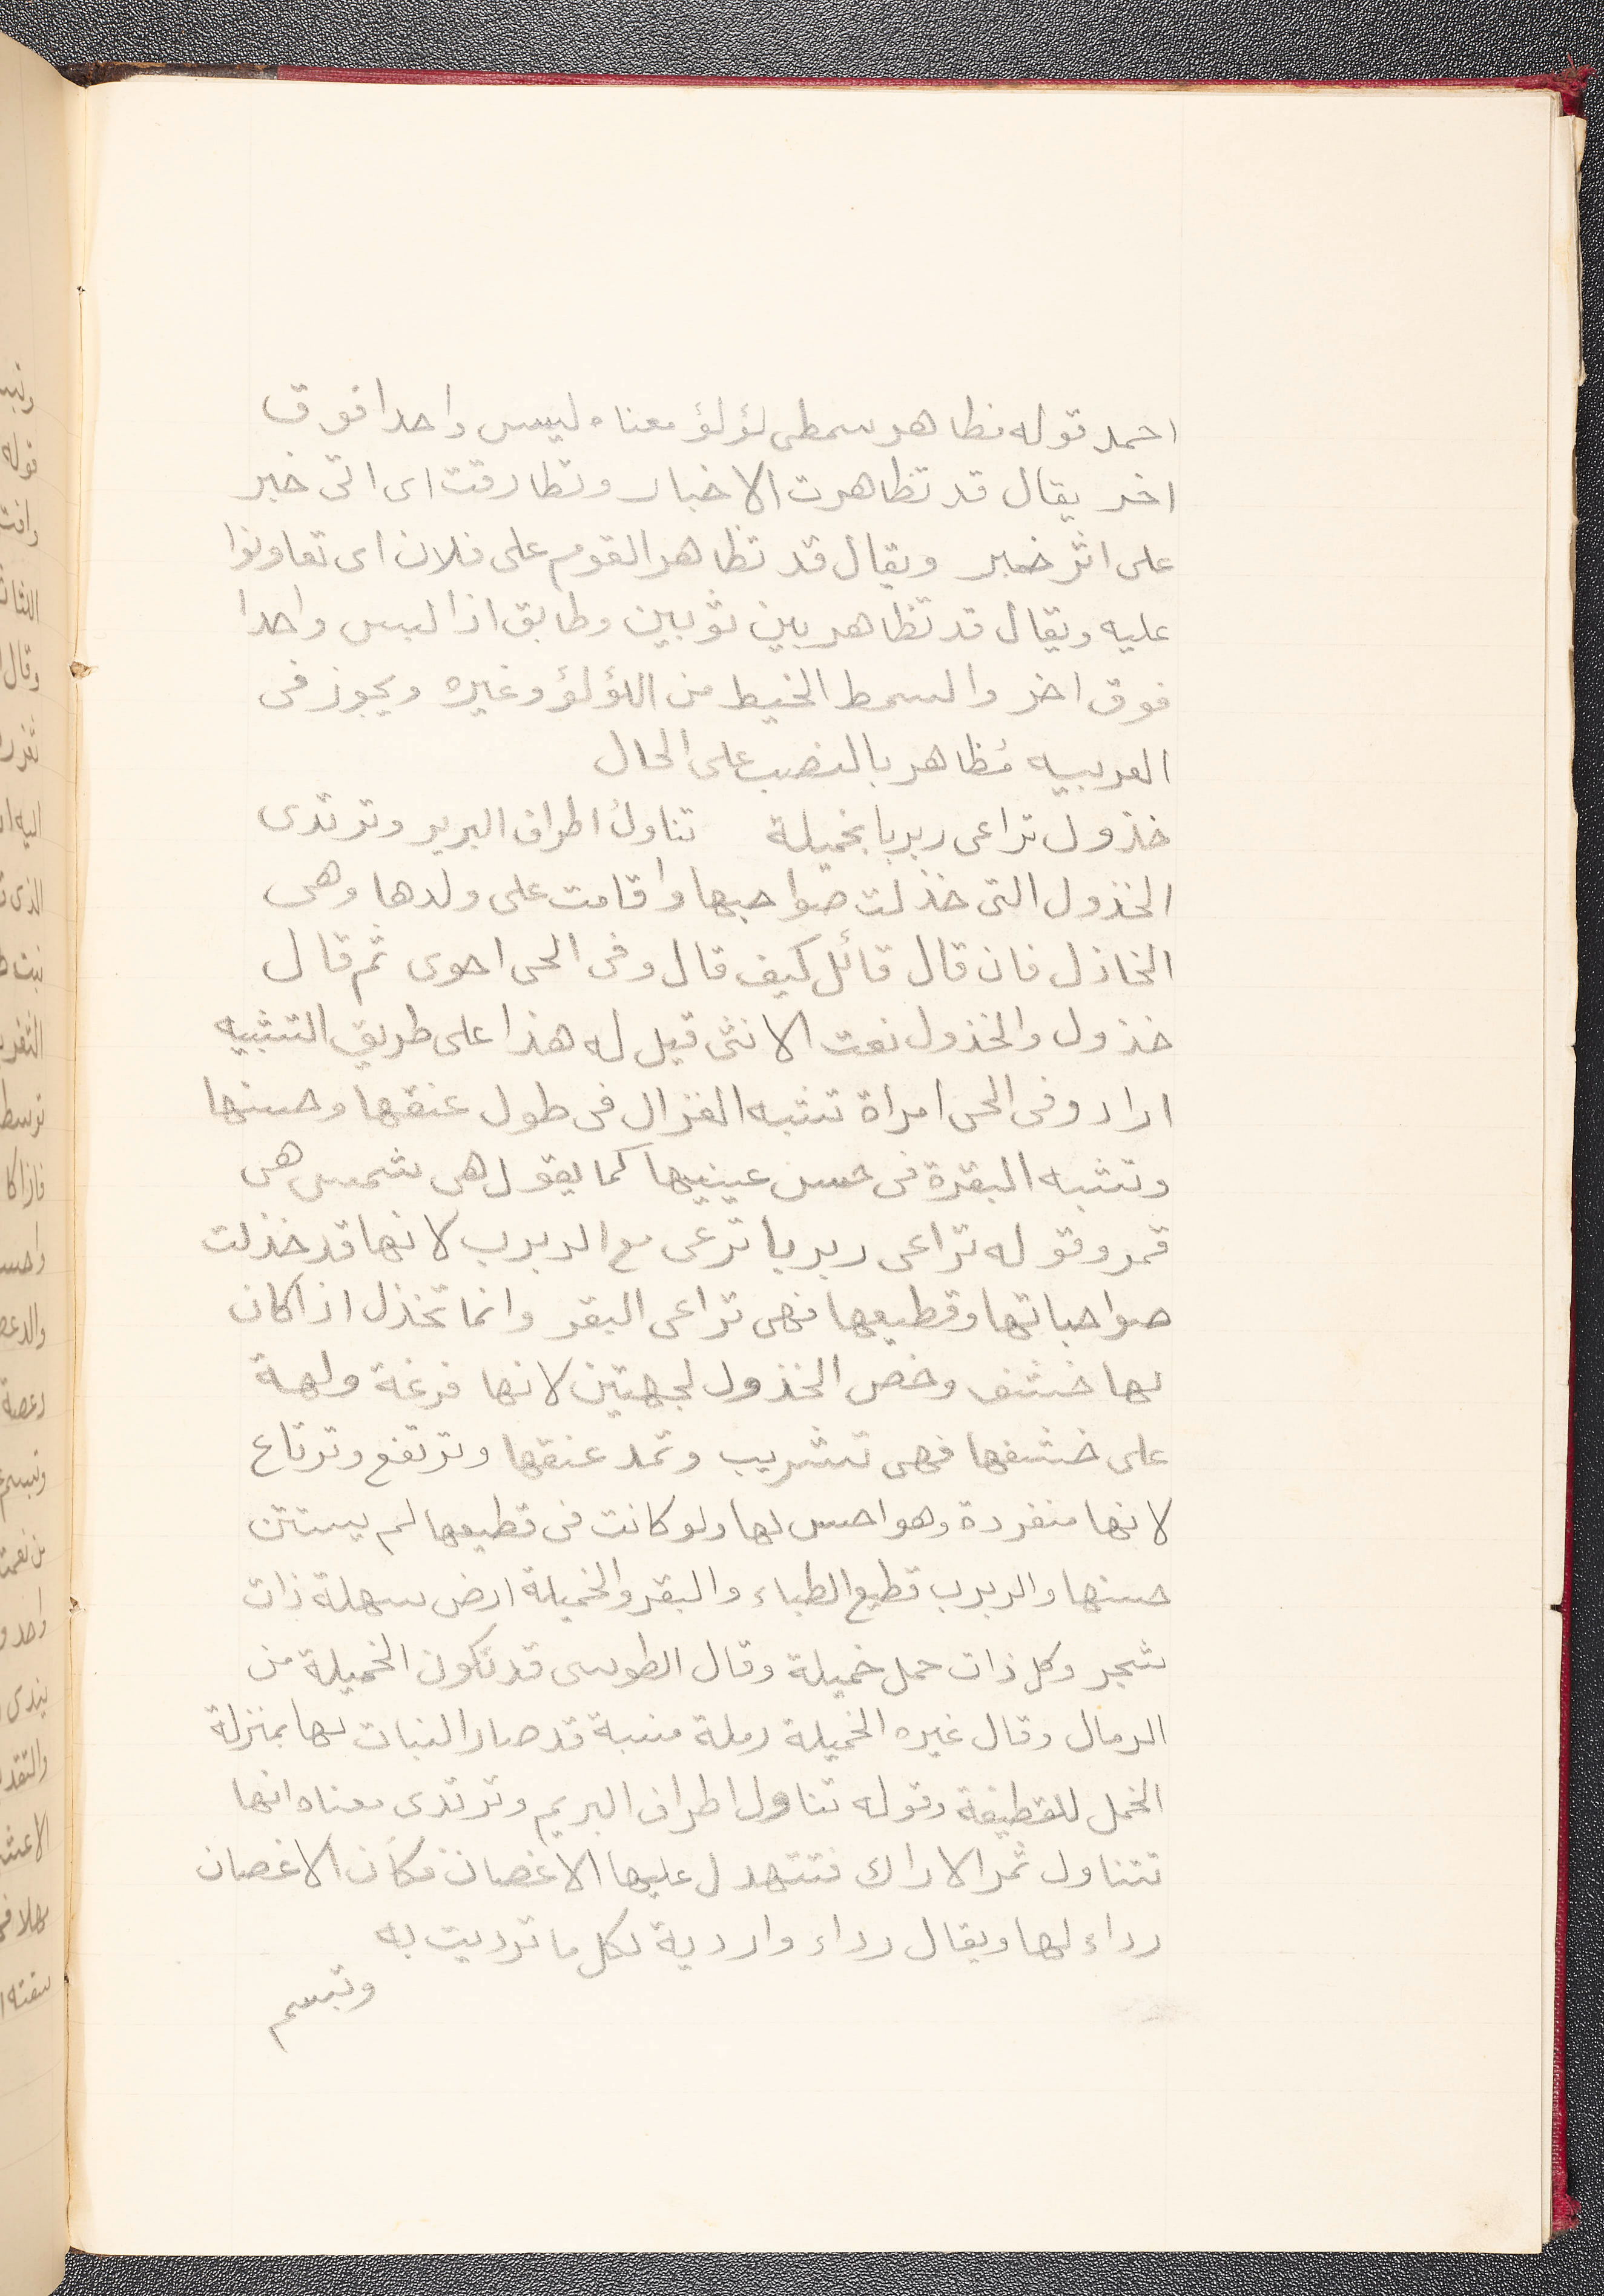 احمد قوله مظاهر سمطى لؤلؤ معناه ليس واحدا فوق
اخر يقال قد تظاهرت الاخبار وتطارقت اى اتى خبر
على اثر خبر ويقال قد تظاهر القوم على فلان اى تعاونوا
عليه ويقال قد تظاهر بين ثوبين وطابق اذا لبس واحدا
فوق اخر والسمط الخيط من اللؤلؤ وغيره ويجوز فى
العربيه مُظاهر بالنصب على الحال
خذول تراعى ربربا بخميلة تناولُ اطراف البرير وترتدى
الخذول التى خذلت صواحبها واقامت على ولدها وهى
الخاذل فان قال قائل كيف قال وفى الحى احوى ثم قال
خذول والخذول نعت الانثى قيل له هذا على طريق التشبيه
اراد وفى الحى امراة تشبه الغزال فى طول عنقها وحسنها
وتشبه البقرة فى حسن عينيها كما يقول هى شمس هى
قمر وقوله تراعى ربربا ترعى مع الربرب لانها قد خذلت
صواحباتها وقطيعها فهى تراعى البقر وانما تخذل اذا كان
لها خشف وخص الخذول لجهتين لانها فزعة ولهة
على خشفها فهى تشريب وتمد عنقها وترتفع وترتاع
لانها منفردة وهو احسن لها ولو كانت فى قطيعها لم يستبن
حسنها والربرب قطيع الظباء والبقر والخميلة ارض سهلة ذات
شجر وكل ذات حمل خميلة وقال الطوسى قد تكون الخميلة من
الرمال وقال غيره الخميلة رملة منبتة قد صار النبات لها بمنزلة
الخمل للقطيفة وقوله تناول اطراف البريم وترتدى معناه انها
تتناول ثمر الاراك فتتهدل عليها الاغصان فكان الاغصان
رداء لها ويقال رداء واردية لكل ما ترديت به
وتبسم